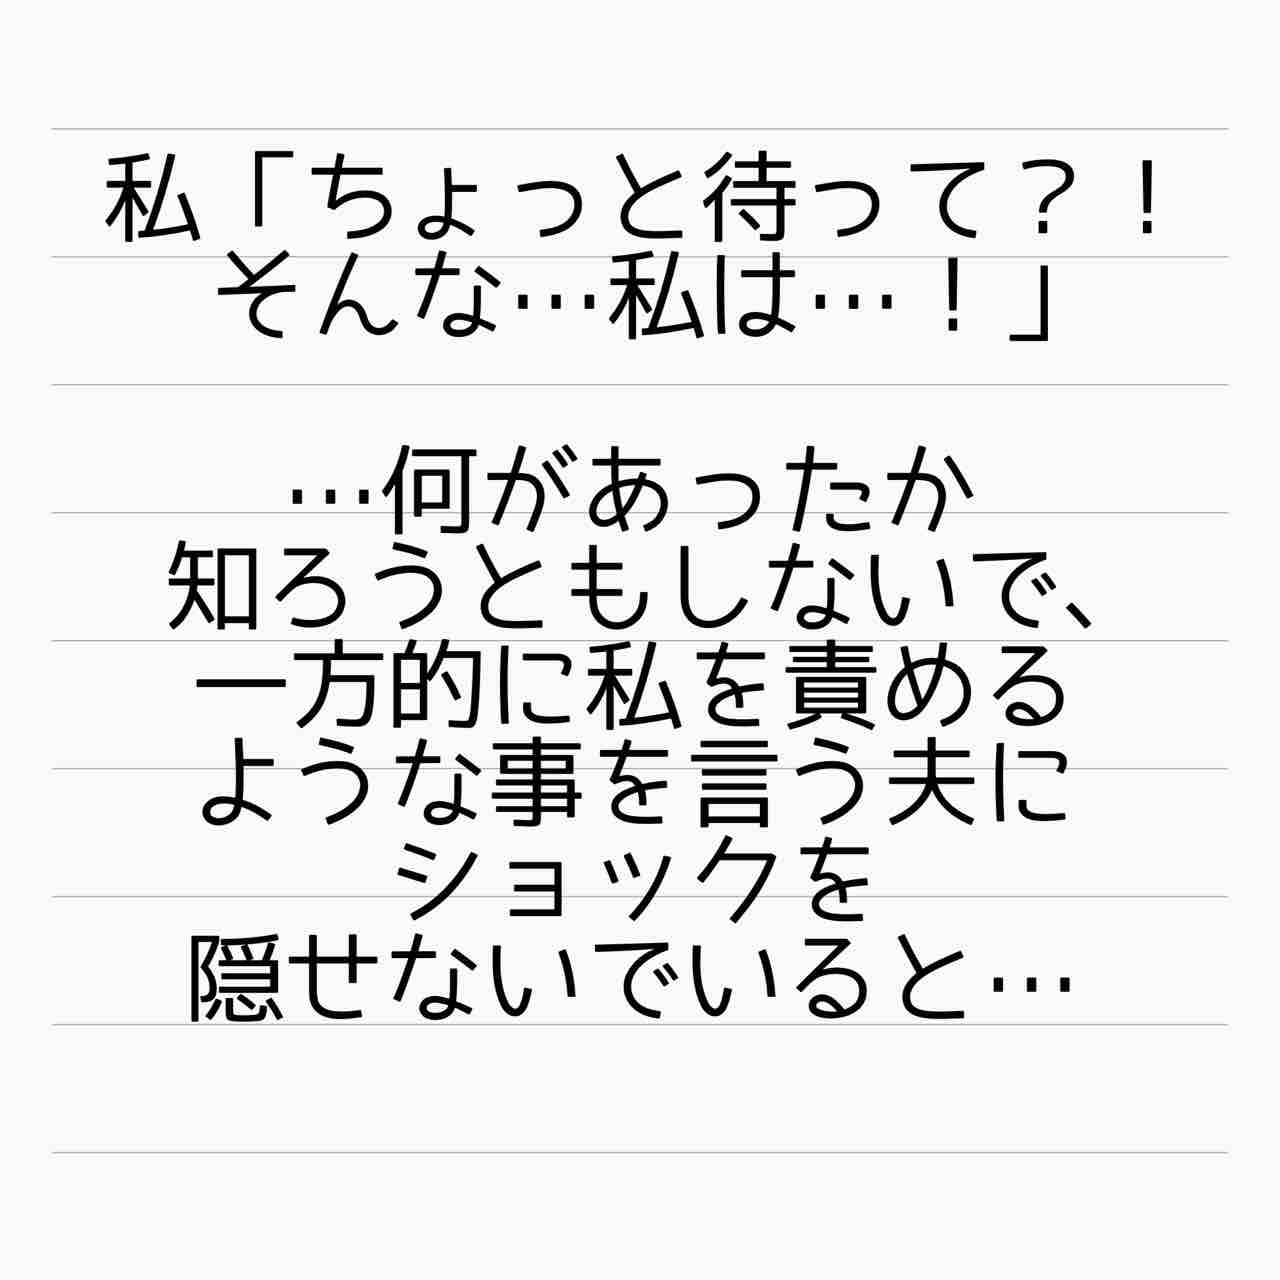 私「ちょっと待って？！
そんな…私は…！」
…何があったか
知ろうともしないで、
一方的に私を責める
ような事を言う夫に
ショックを
隠せないでいると…